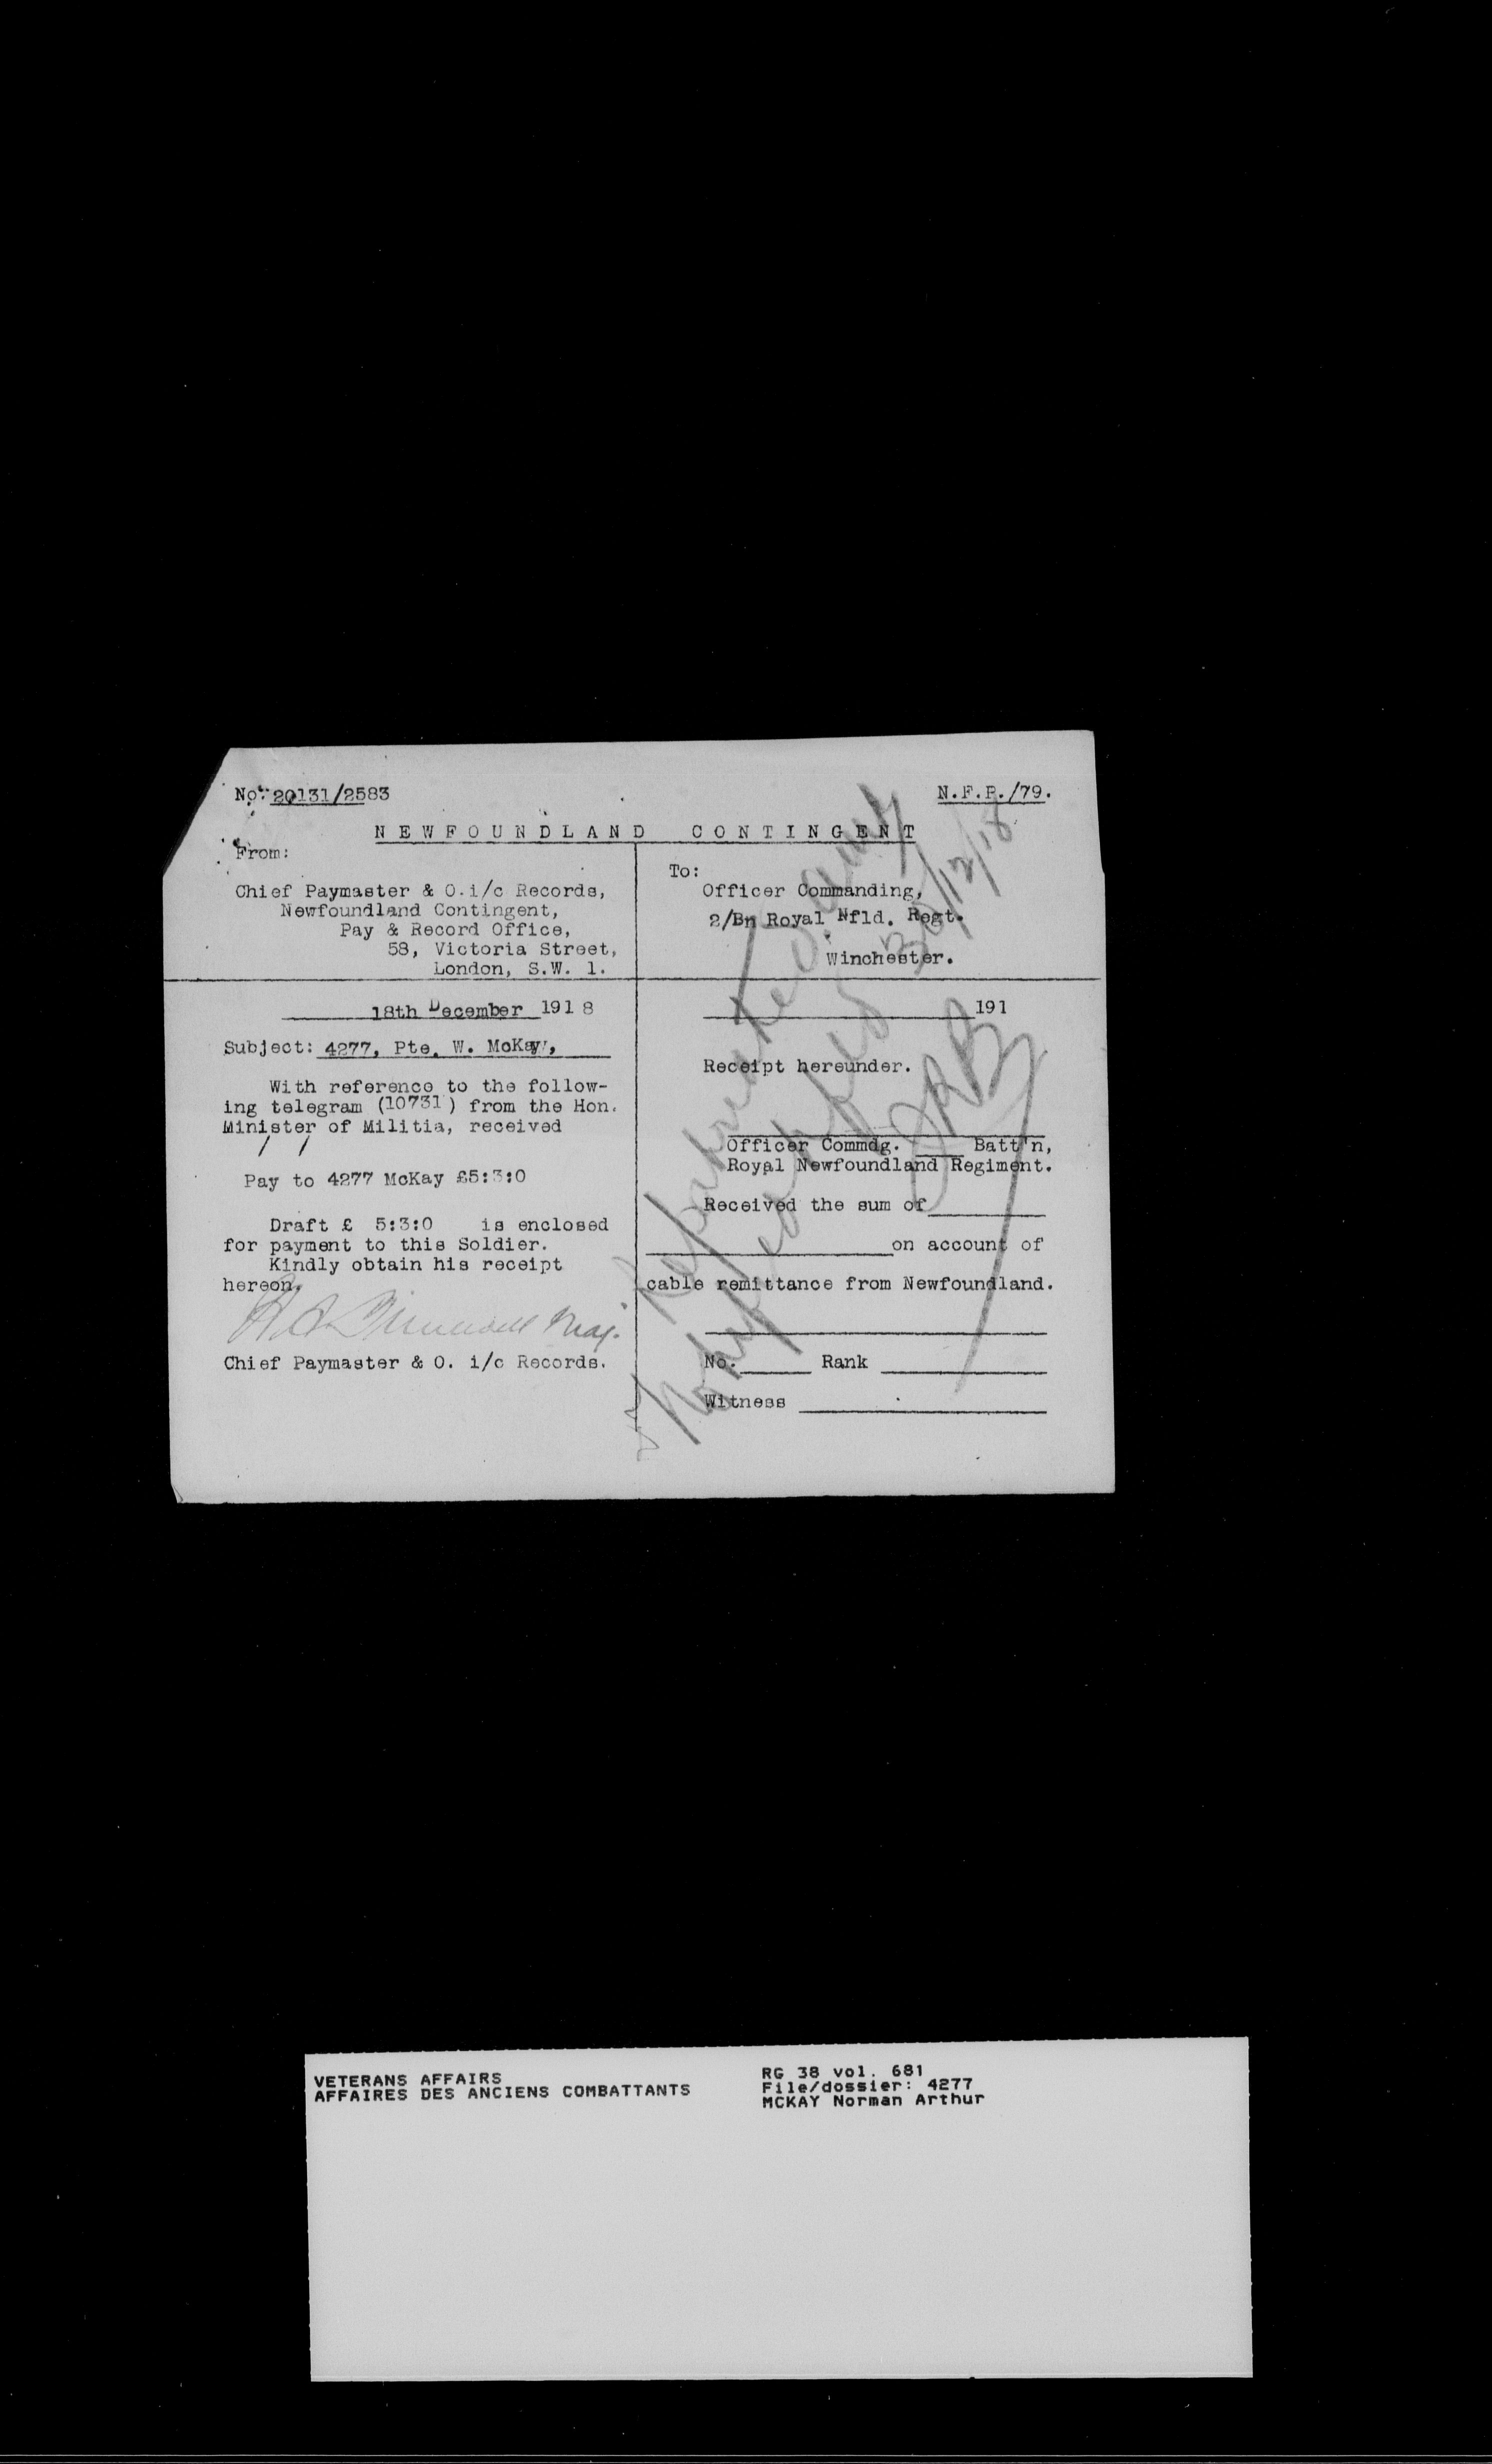 No. 20131/2583
N.F.P./79.
NEWFOUNDLAND CONTINGENT
From:
Chief Paymaster & O.i/c Records,
Newfoundland Contingent,
Pay & Record Office,
58, Victoria Street,
London, S.W. 1.
To:
Officer Commanding,
2/Bn Royal Nfld. Regt.
Winchester.
18th December 1918
Subject: 4277, Pte. W. McKay,
With reference to the follow-
ing telegram (10731) from the Hon.
Minister of Militia, received
/ /
Pay to 4277 McKay £5:3:0
Draft £ 5:3:0 is enclosed
for payment to this Soldier.
Kindly obtain his receipt
hereon.
Maj.
Chief Paymaster & O. i/c Records.
191
Receipt hereunder.
Officer Commdg. Batt'n,
Royal Newfoundland Regiment.
Received the sum of
on account of
cable remittance from Newfoundland.
No. Rank
Witness
/12/18
VETERANS AFFAIRS
AFFAIRES DES ANCIENS COMBATTANTS
RG 38 vol. 681
File/dossier: 4277
MCKAY Norman Arthur